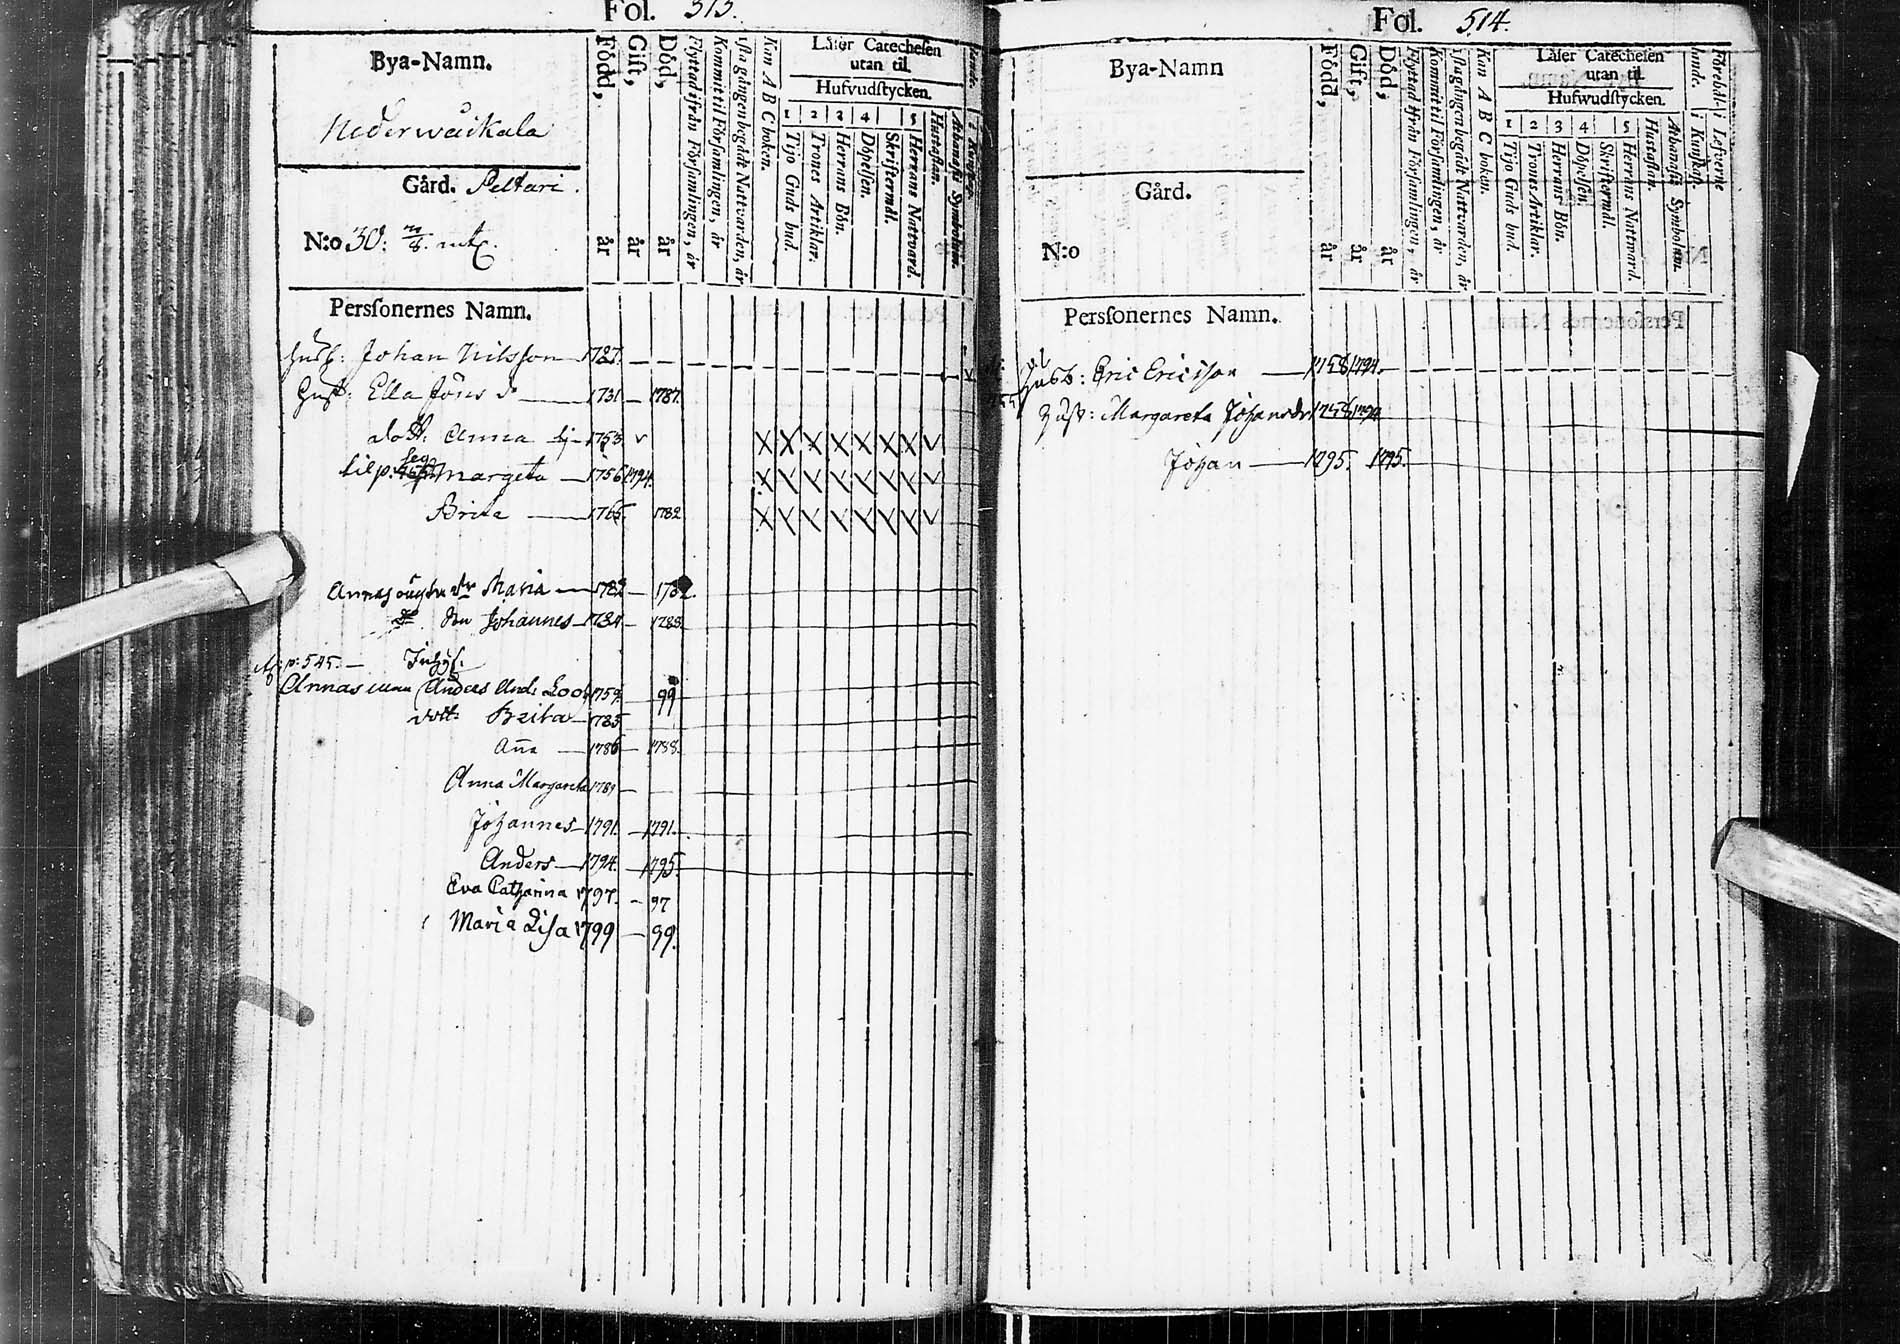 Fol. 513.
Bya-Namn.
Nederwäikala
Gård. Peltari.
N:o 30:
Persſonernes Namn.
Född, år
Gift, år
Död, år
Flyttad ifrån Församlingen, år
Kommit til Församlingen, år
1sta gången begådt Nattvarden, år
Kan A B C boken.
Låſer Catecheſen
utan til.
Hufvudſtycken.
1 2 3 4 5
Tijo Guds bud.
Trones Artiklar.
Herrans Bön.
Döpelſen.
Skriftermål.
Herrans Nattvard.
Huſtaflan.
Athanaſii Symbolum.
Husb: Johan Nilsſon 1727. — —
Hust: Ella Jöns d 1731 — 1787.
dott. Anna 1753 v
Margeta 1756 1794.
Brita 1765. 1782
Annas Maria 1782 — 1782.
Johannes 1784 — 1785.
p: 545. — Inhys.
Annas man Anders And: Loo 1759. — 99
dott: Breita 1785
Aña 1786 — 1788.
Anna Margareta 1789 — —
Johannes 1791. — 1791.
Anders 1794. — 1795.
Eva Catharina 1797. — 97
Maria Lisa 1799 — 99.
Fol. 514.
Bya-Namn
Gård.
N:o
Persſonernes Namn.
Född, år
Gift, år
Död, år
Flyttad ifrån Församlingen, år
Kommit til Församlingen, år
1sta gången begådt Nattvarden, år
Kan A B C boken.
Låſer Catecheſen
utan til.
Hufwudſtycken.
1 2 3 4 5
Tijo Guds bud.
Trones Artiklar.
Herrans Bön.
Döpelſen.
Skriftermål.
Herrans Nattward.
Huſtaflan.
Athanaſii Symbolum.
i Kunſkap.
i Lefverne
Husb: Eric Ericsſon 1758 1794.
Hust: Margareta Johansdr 1756 1794
Johan 1795. 1795.